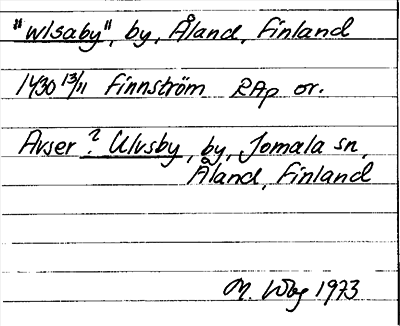 "wlsaby", by, Åland, Finland
1430 13/11 Finnström RAp or.
Avser ? Ulvsby, by, Jomala sn,
Åland, Finland
M. Wbg 1973